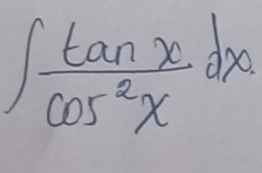 ∫ tan x / cos²x dx.